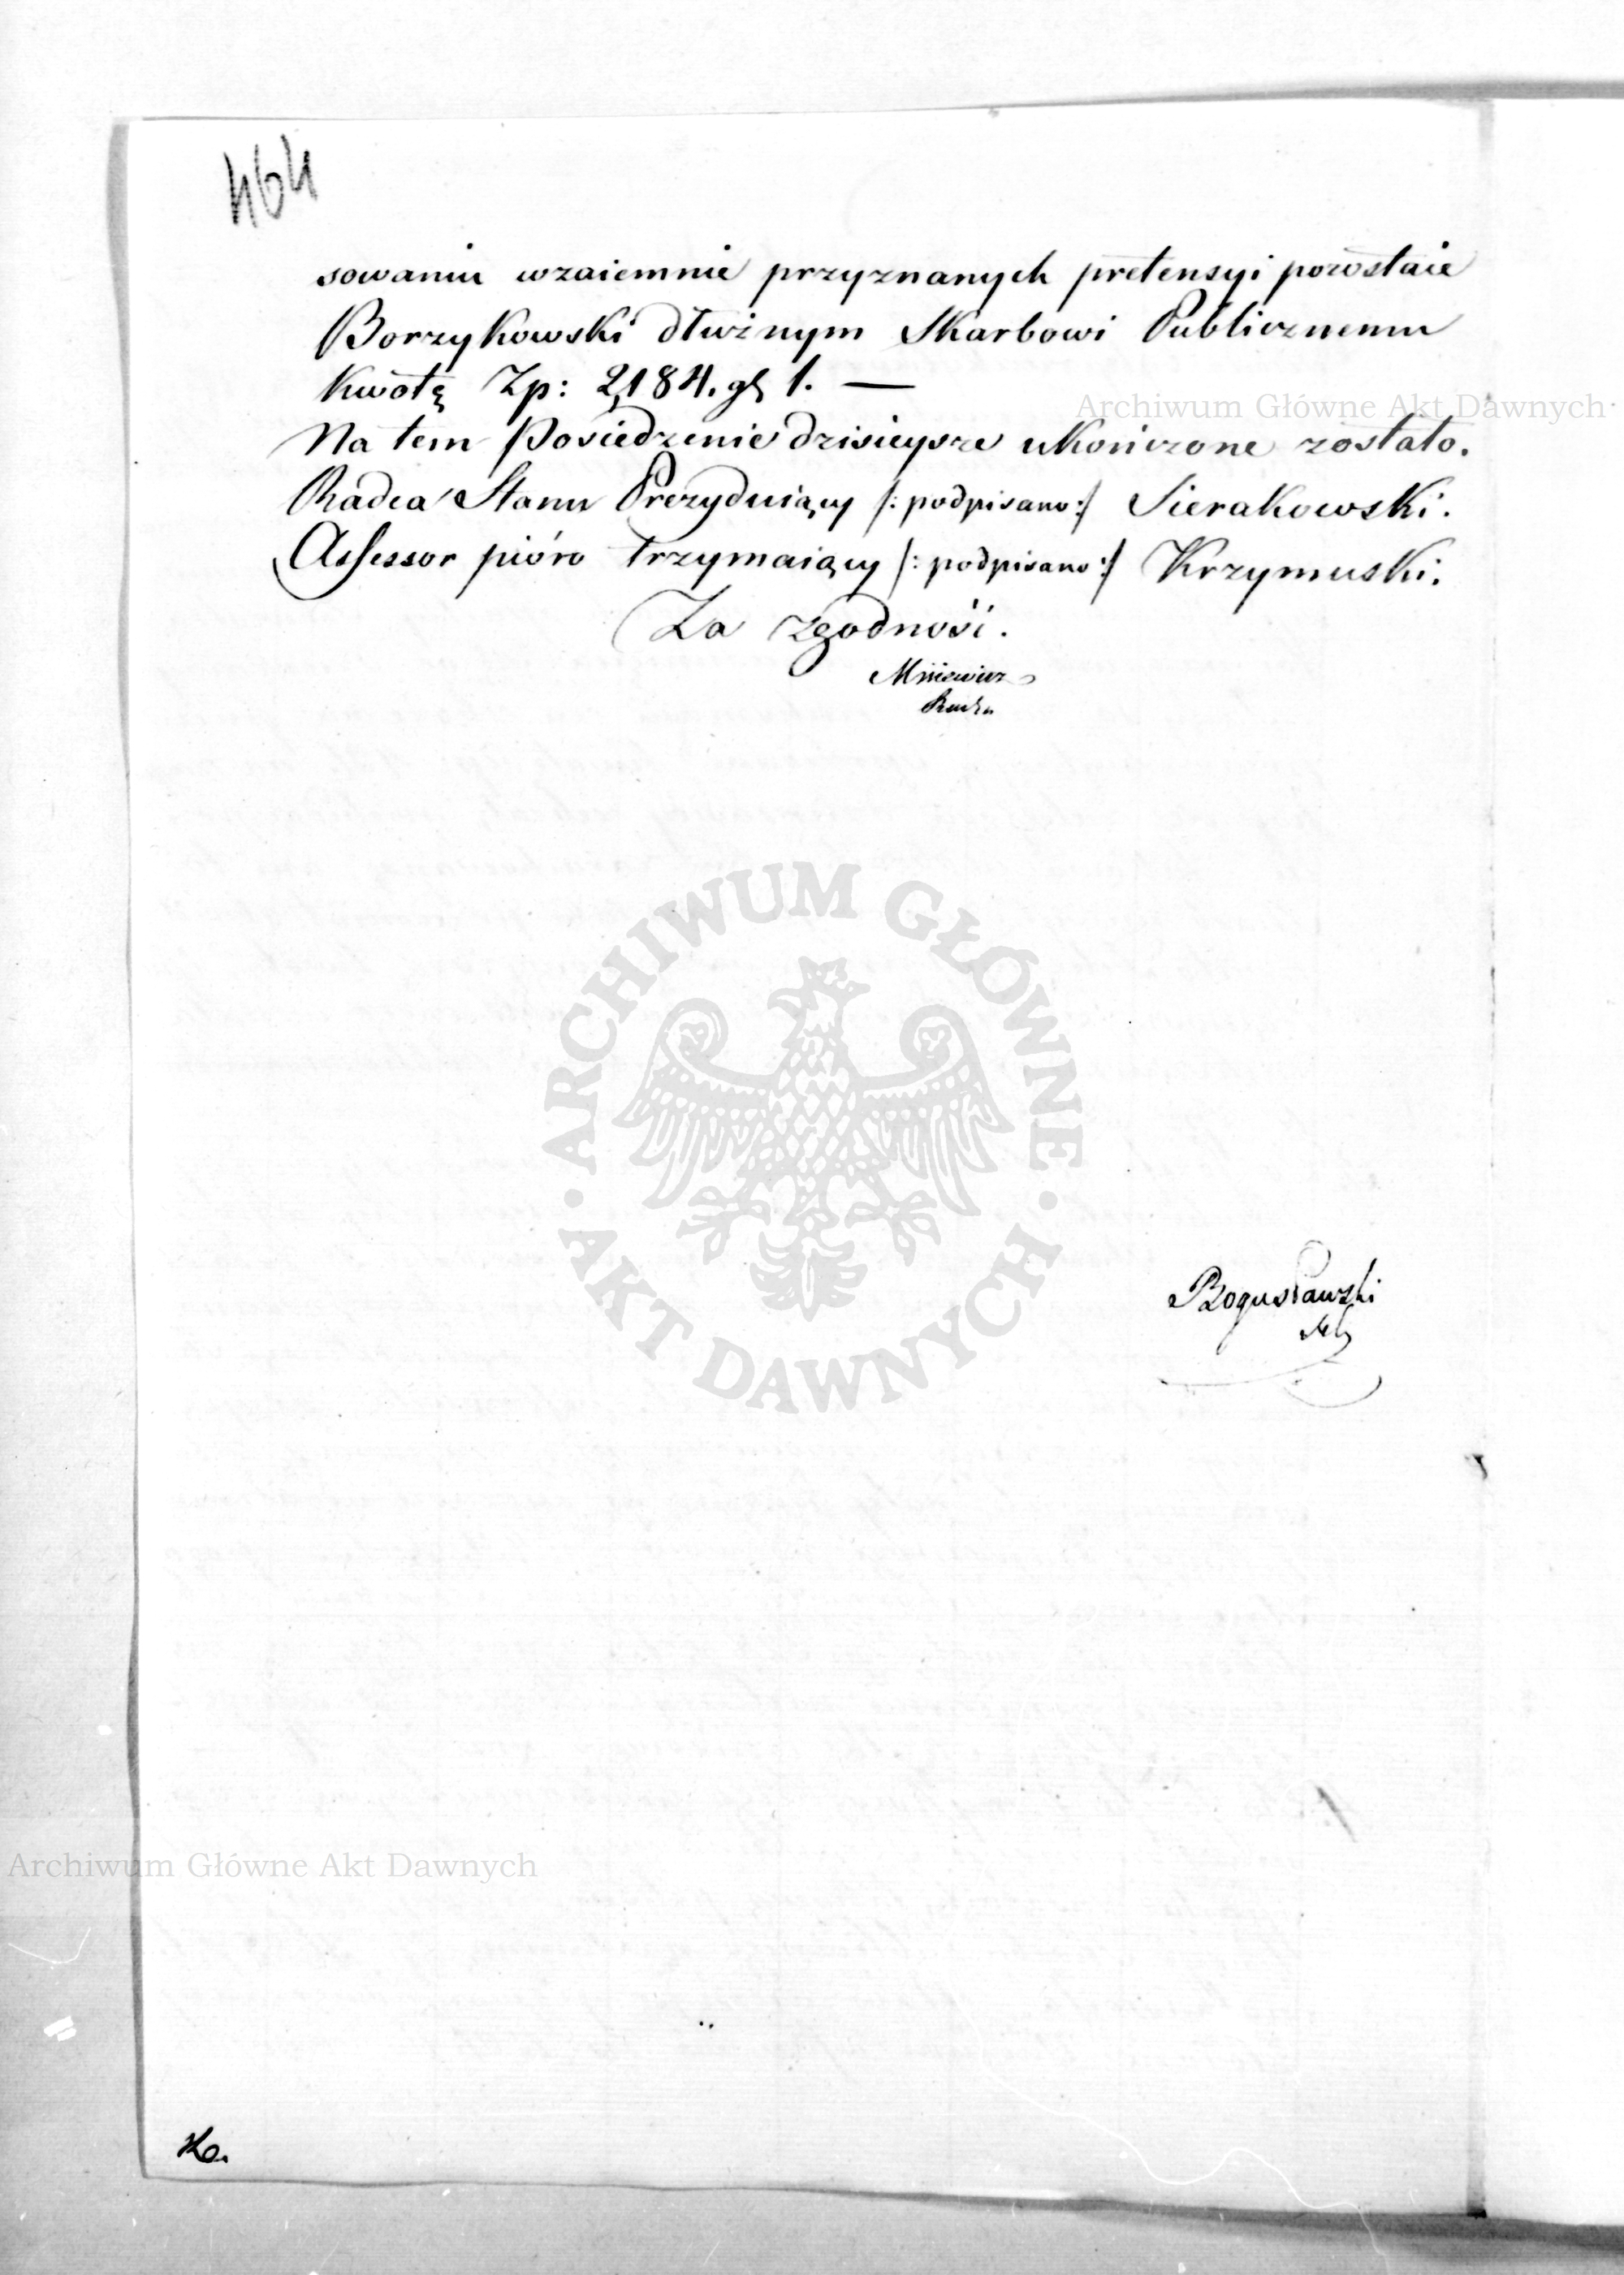 464
sowaniu wzaiemnie przyznanych pretensyi pozostaie
Borzykowski dłużnym Skarbowi Publicznemu
Kwotę Zp: 2,184. gr 1. —
Na tem Posiedzenie dzisieysze ukończone zostało.
Radca Stanu Prezyduiący /: podpisano :/ Sierakowski.
Assessor pióro trzymaiący /: podpisano :/ Krzymuski.
Za zgodność.
ARCHIWUM GŁÓWNE
AKT DAWNYCH
Archiwum Główne Akt Dawnych
Bogusławski
Archiwum Główne Akt Dawnych